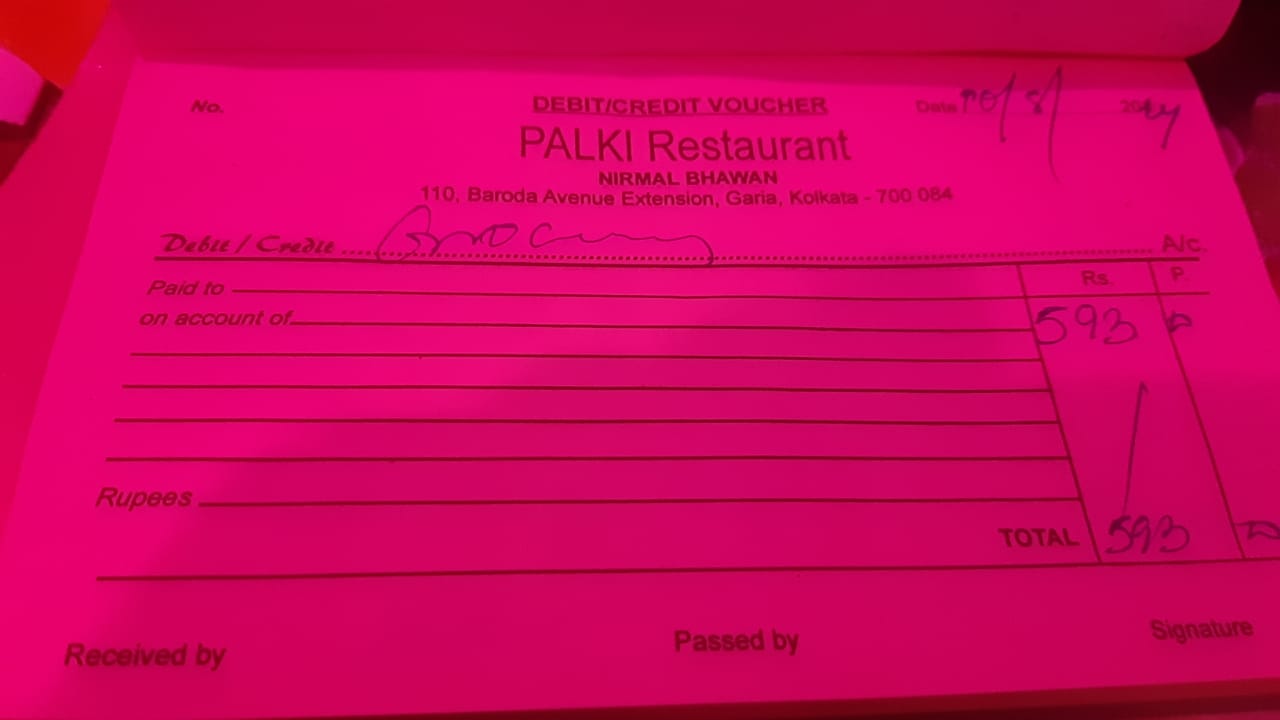 No. DEBIT/CREDIT VOUCHER Date 10/8/ 2024
PALKI Restaurant
NIRMAL BHAWAN
110, Baroda Avenue Extension, Garia, Kolkata - 700 084
Debit / Credit Grocery A/c.
Rs. P.
Paid to
on account of 593
Rupees
TOTAL 593
Received by Passed by Signature